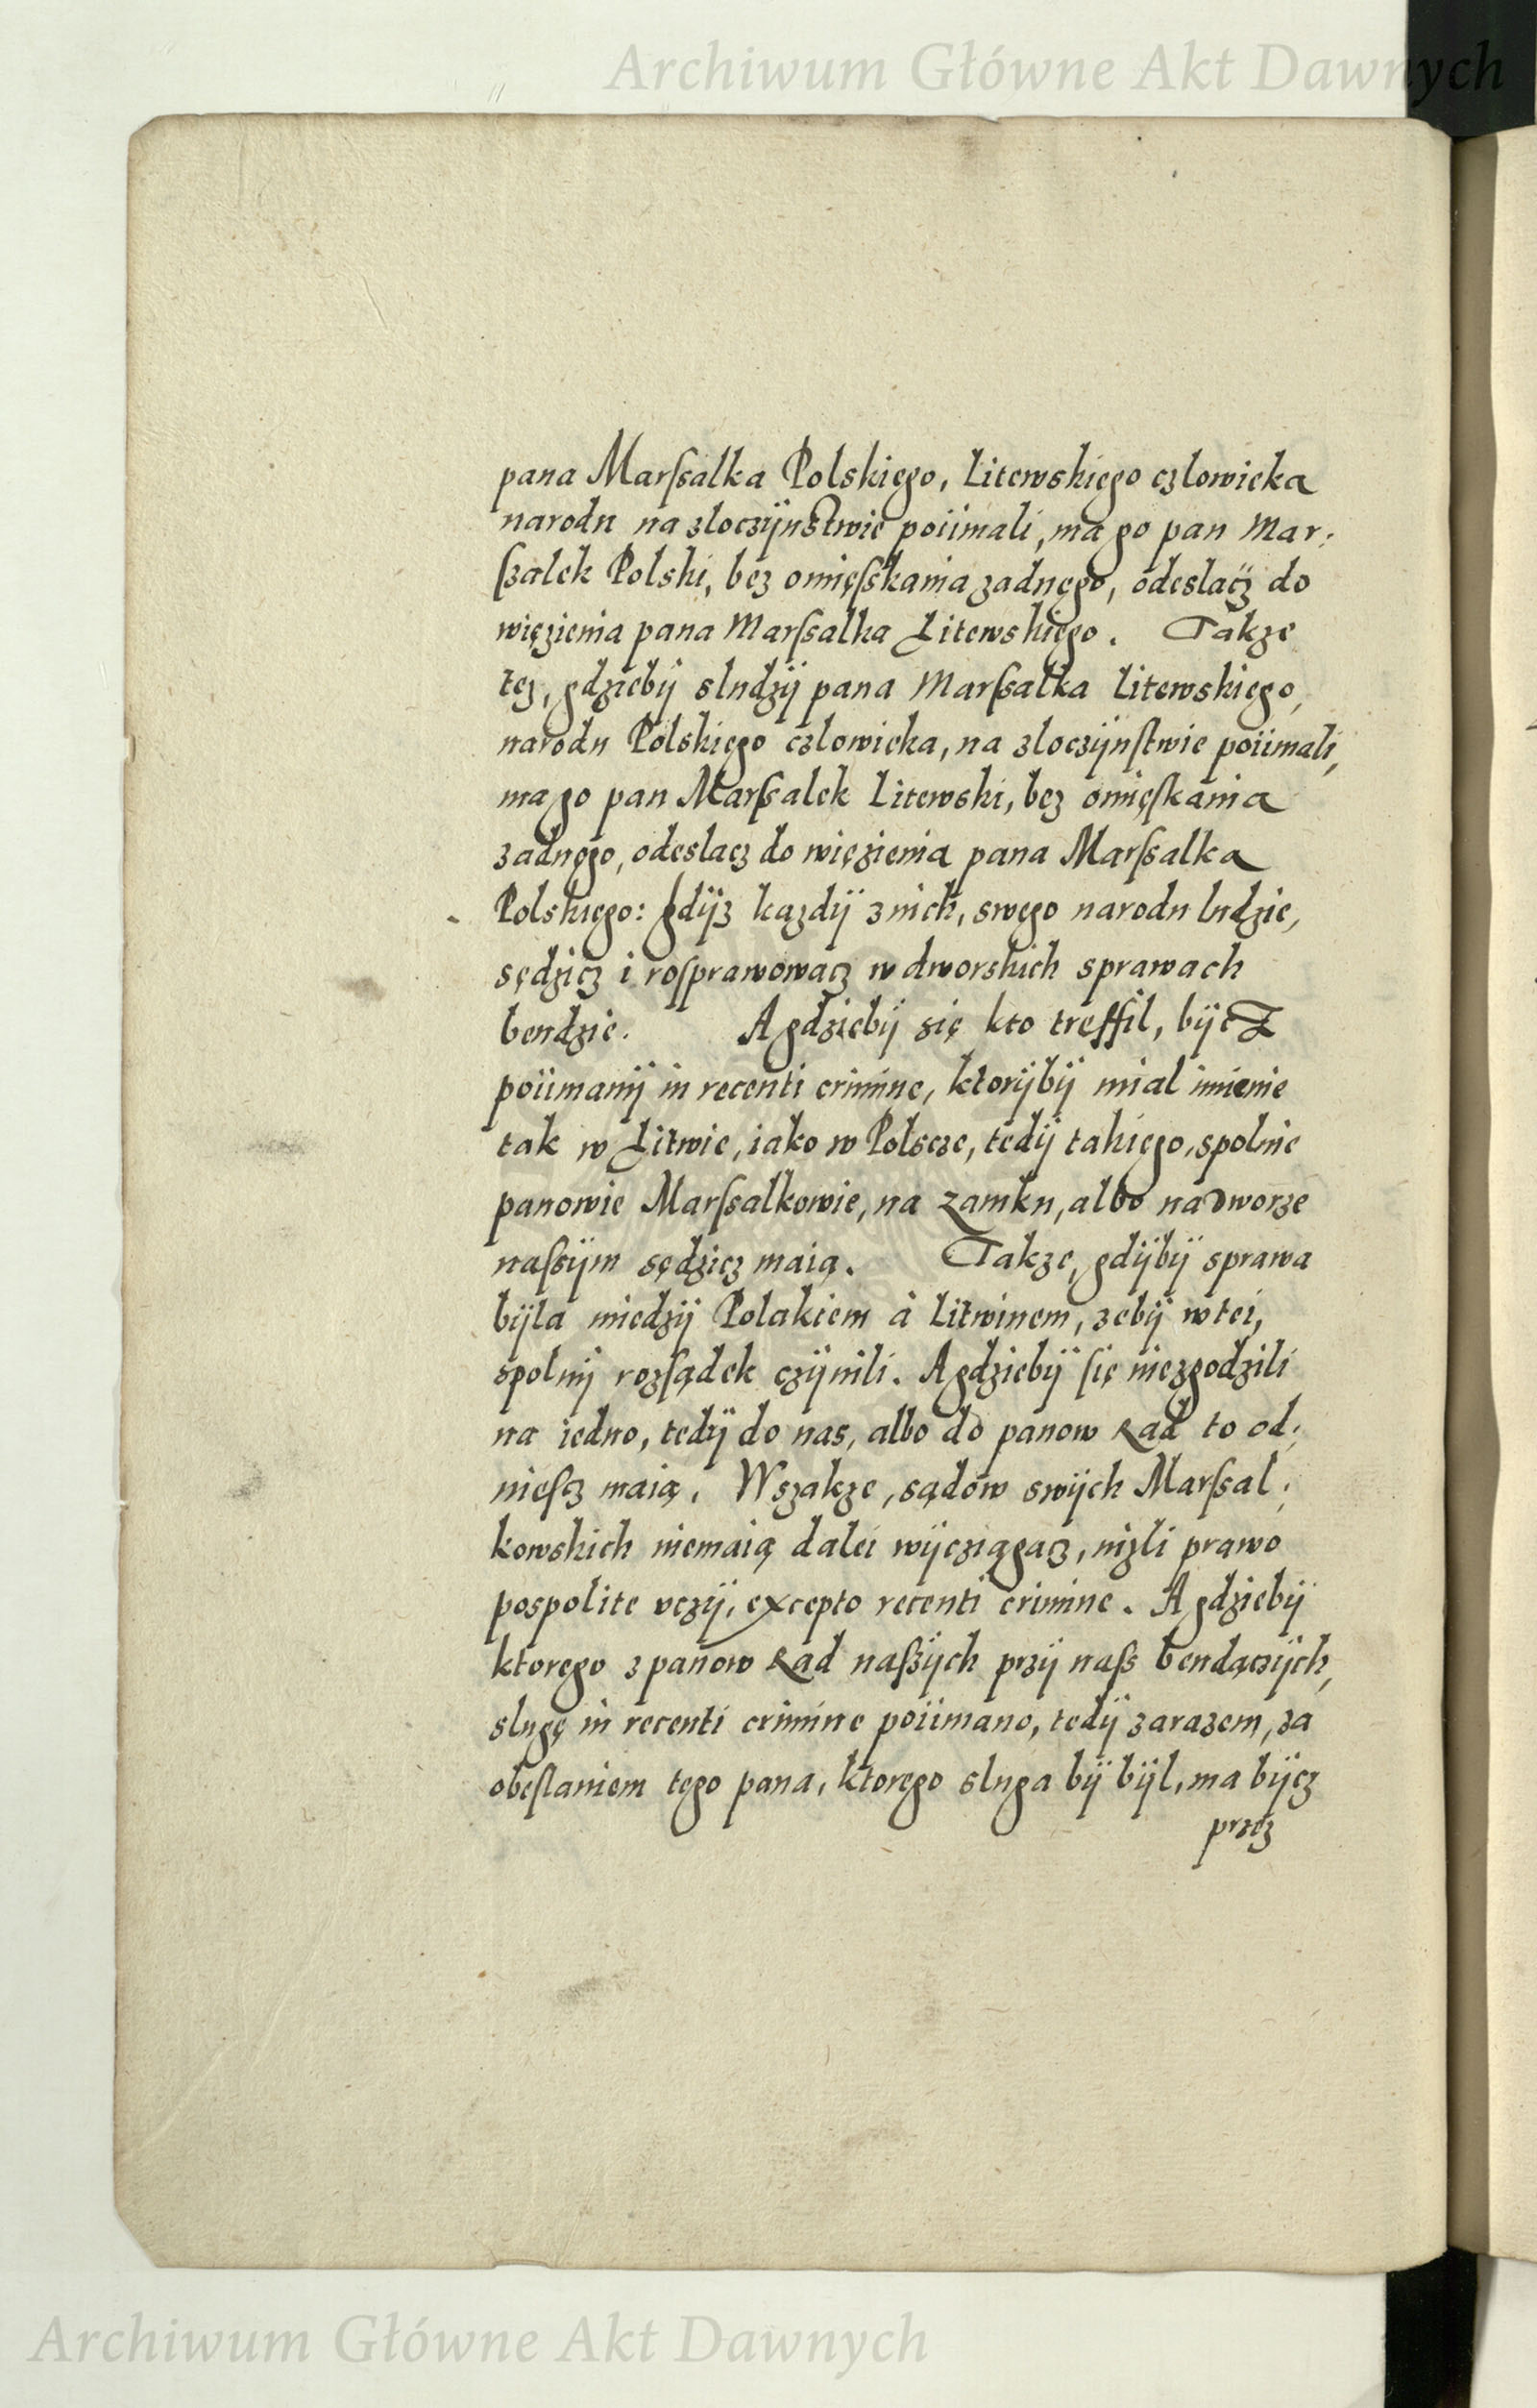 Archiwum Główne Akt Dawnych
pana Marſsalka Polskiego, Litewskiego czlowieka
narodu na zloczÿnſtwie poiimali, ma go pan Mar:
ſzalek Polski, bez omięſskania zadnęgo, odeslacz do
więzienia pana Marſsalka Litewskięgo. Takze
tez, gdziebÿ sludzÿ pana Marſsalka Litewskiego,
narodu Polskięgo czlowieka, na zloczÿnſtwie poiimali,
ma go pan Marſsalek Litewski, bez omięſkania
zadnęgo, odeslacz do więzienia pana Marſsalka
Polskięgo: gdÿz kazdÿ z nich, swęgo narodu ludzie,
sędzicz i roſprawowacz w dworskich sprawach
bendzie. A gdziebÿ się kto treffil, bÿcz
poiimanÿ in recenti crimine, ktorÿbÿ mial imienie
tak w Litwie, iako w Polscze, tedÿ takięgo, spolnie
panowie Marſsalkowie, na zamku, albo na dworze
naſsÿm sędzicz maią. Takze, gdÿbÿ sprawa
bÿla miedzÿ Polakiem á Litwinem, zebÿ w tei,
spolnÿ rozſądek czÿnili. A gdziebÿ ſię niezgodzili
na iedno, tedÿ do nas, albo do panow Rad to od:
nieſcz maią. Wszakze, sądow swÿch Marſsal:
kowskich niemaią dalei wÿcziągacz, nizli prawo
pospolite vczÿ, excepto recenti crimine. A gdziebÿ
ktorego z panow Rad naſzÿch przÿ naſs bendączÿch,
slugę in recenti crimine poiimano, tedÿ zarazem, za
obeſlaniem tego pana, ktorego sluga bÿ bÿl, ma bÿcz
przez
Archiwum Główne Akt Dawnych